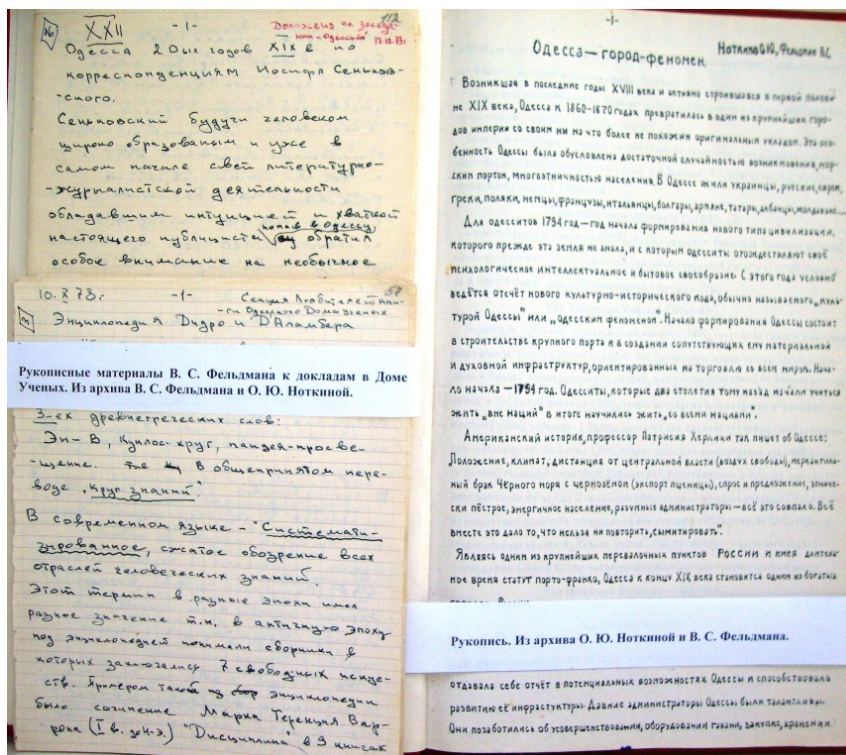 XXII
-1-
112
Доложена на заседа-
нии „Одессика"
Одесса 20ых годов XIX в по
корреспонденциям Иосифа Сеньков-
-ского.
Сеньковский будучи человеком
широко образованым и уже в
самом начале своей литературно-
-журналистской деятельности
обладавшим интуицией и хваткой
настоящего публициста попав в Одессу обратил
особое внимание на необычное
10.X 78г.
-1-
Секция Любителей кни-
-ги Одесского Дома ученых
Энциклопедия Дидро и Д'Аламбера
Рукописные материалы В. С. Фельдмана к докладам в Доме
Ученых. Из архива В. С. Фельдмана и О. Ю. Ноткиной.
3-ех древнегреческих слов:
Эн-В, Куклос-круг, пандей-просве-
-щение. В общепринятом пере-
воде „круг знаний".
В современном языке - "Системати-
зированное, сжатое обозрение всех
отраслей человеческих знаний.
Этот термин в разные эпохи имел
разное значение т.н. в античную эпоху
под энциклопедией понимали сборники в
которых заключались 7 свободных искус-
ств. Примером такой энциклопедии
было сочинение Марка Теренция Вар-
рона (I в. до н.э.) "Дисциплина" в 9 книгах
-1-
Ноткина О.Ю., Фельдман В.С.
Одесса — город-феномен.
Возникшая в последние годы XVIII века и активно строившаяся в первой полови
не XIX века, Одесса к 1860-1870 годах превратилась в один из крупнейших горо-
дов империи со своим ни на что более не похожим оригинальным укладом. Эта осо-
бенность Одессы была обусловлена достаточной случайностью возникновения, мор-
ским портом, многоэтничностью населения. В Одессе жили украинцы, русские, евреи,
греки, поляки, немцы, французы, итальянцы, болгары, армяне, татары, албанцы, молдаване...
Для одесситов 1794 год — год начала формирования нового типа цивилизации,
которого прежде эта земля не знала, и с которым одесситы отождествляют своё
психологическое интеллектуальное и бытовое своеобразие. С этого года условно
ведётся отсчёт нового культурно-исторического кода, обычно называемого „куль-
турой Одессы" или „одесским феноменом". Начало формирования Одессы состоит
в строительстве крупного порта и в создании сопутствующих ему материальной
и духовной инфраструктур, ориентированных на торговлю со всем миром. Нача-
ло начала — 1794 год. Одесситы, которые два столетия тому назад начали учиться
жить „вне наций" в итоге научились жить „со всеми нациями".
Американский историк, профессор Патрисия Херлихи так пишет об Одессе:
„Положение, климат, дистанция от центральной власти (воздух свободы), меркантиль-
ный брак Чёрного моря с чернозёмом (экспорт пшеницы), спрос и предложение, этниче-
ски пёстрое, энергичное население, разумные администраторы — всё это совпало. Всё
вместе это дало то, что нельзя ни повторить, сымитировать".
Являясь одним из крупнейших перевалочных пунктов России и имея длитель-
ное время статут порто-франко, Одесса к концу XIX века становится одним из богатых
Рукопись. Из архива О. Ю. Ноткиной и В. С. Фельдмана.
отдавала себе отчёт в потенциальных возможностях Одессы и способствовала
развитию её инфраструктуры. Давние администраторы Одессы были талантливы.
Они позаботились об усовершенствовании, оборудовании гавани, закупке, хранении